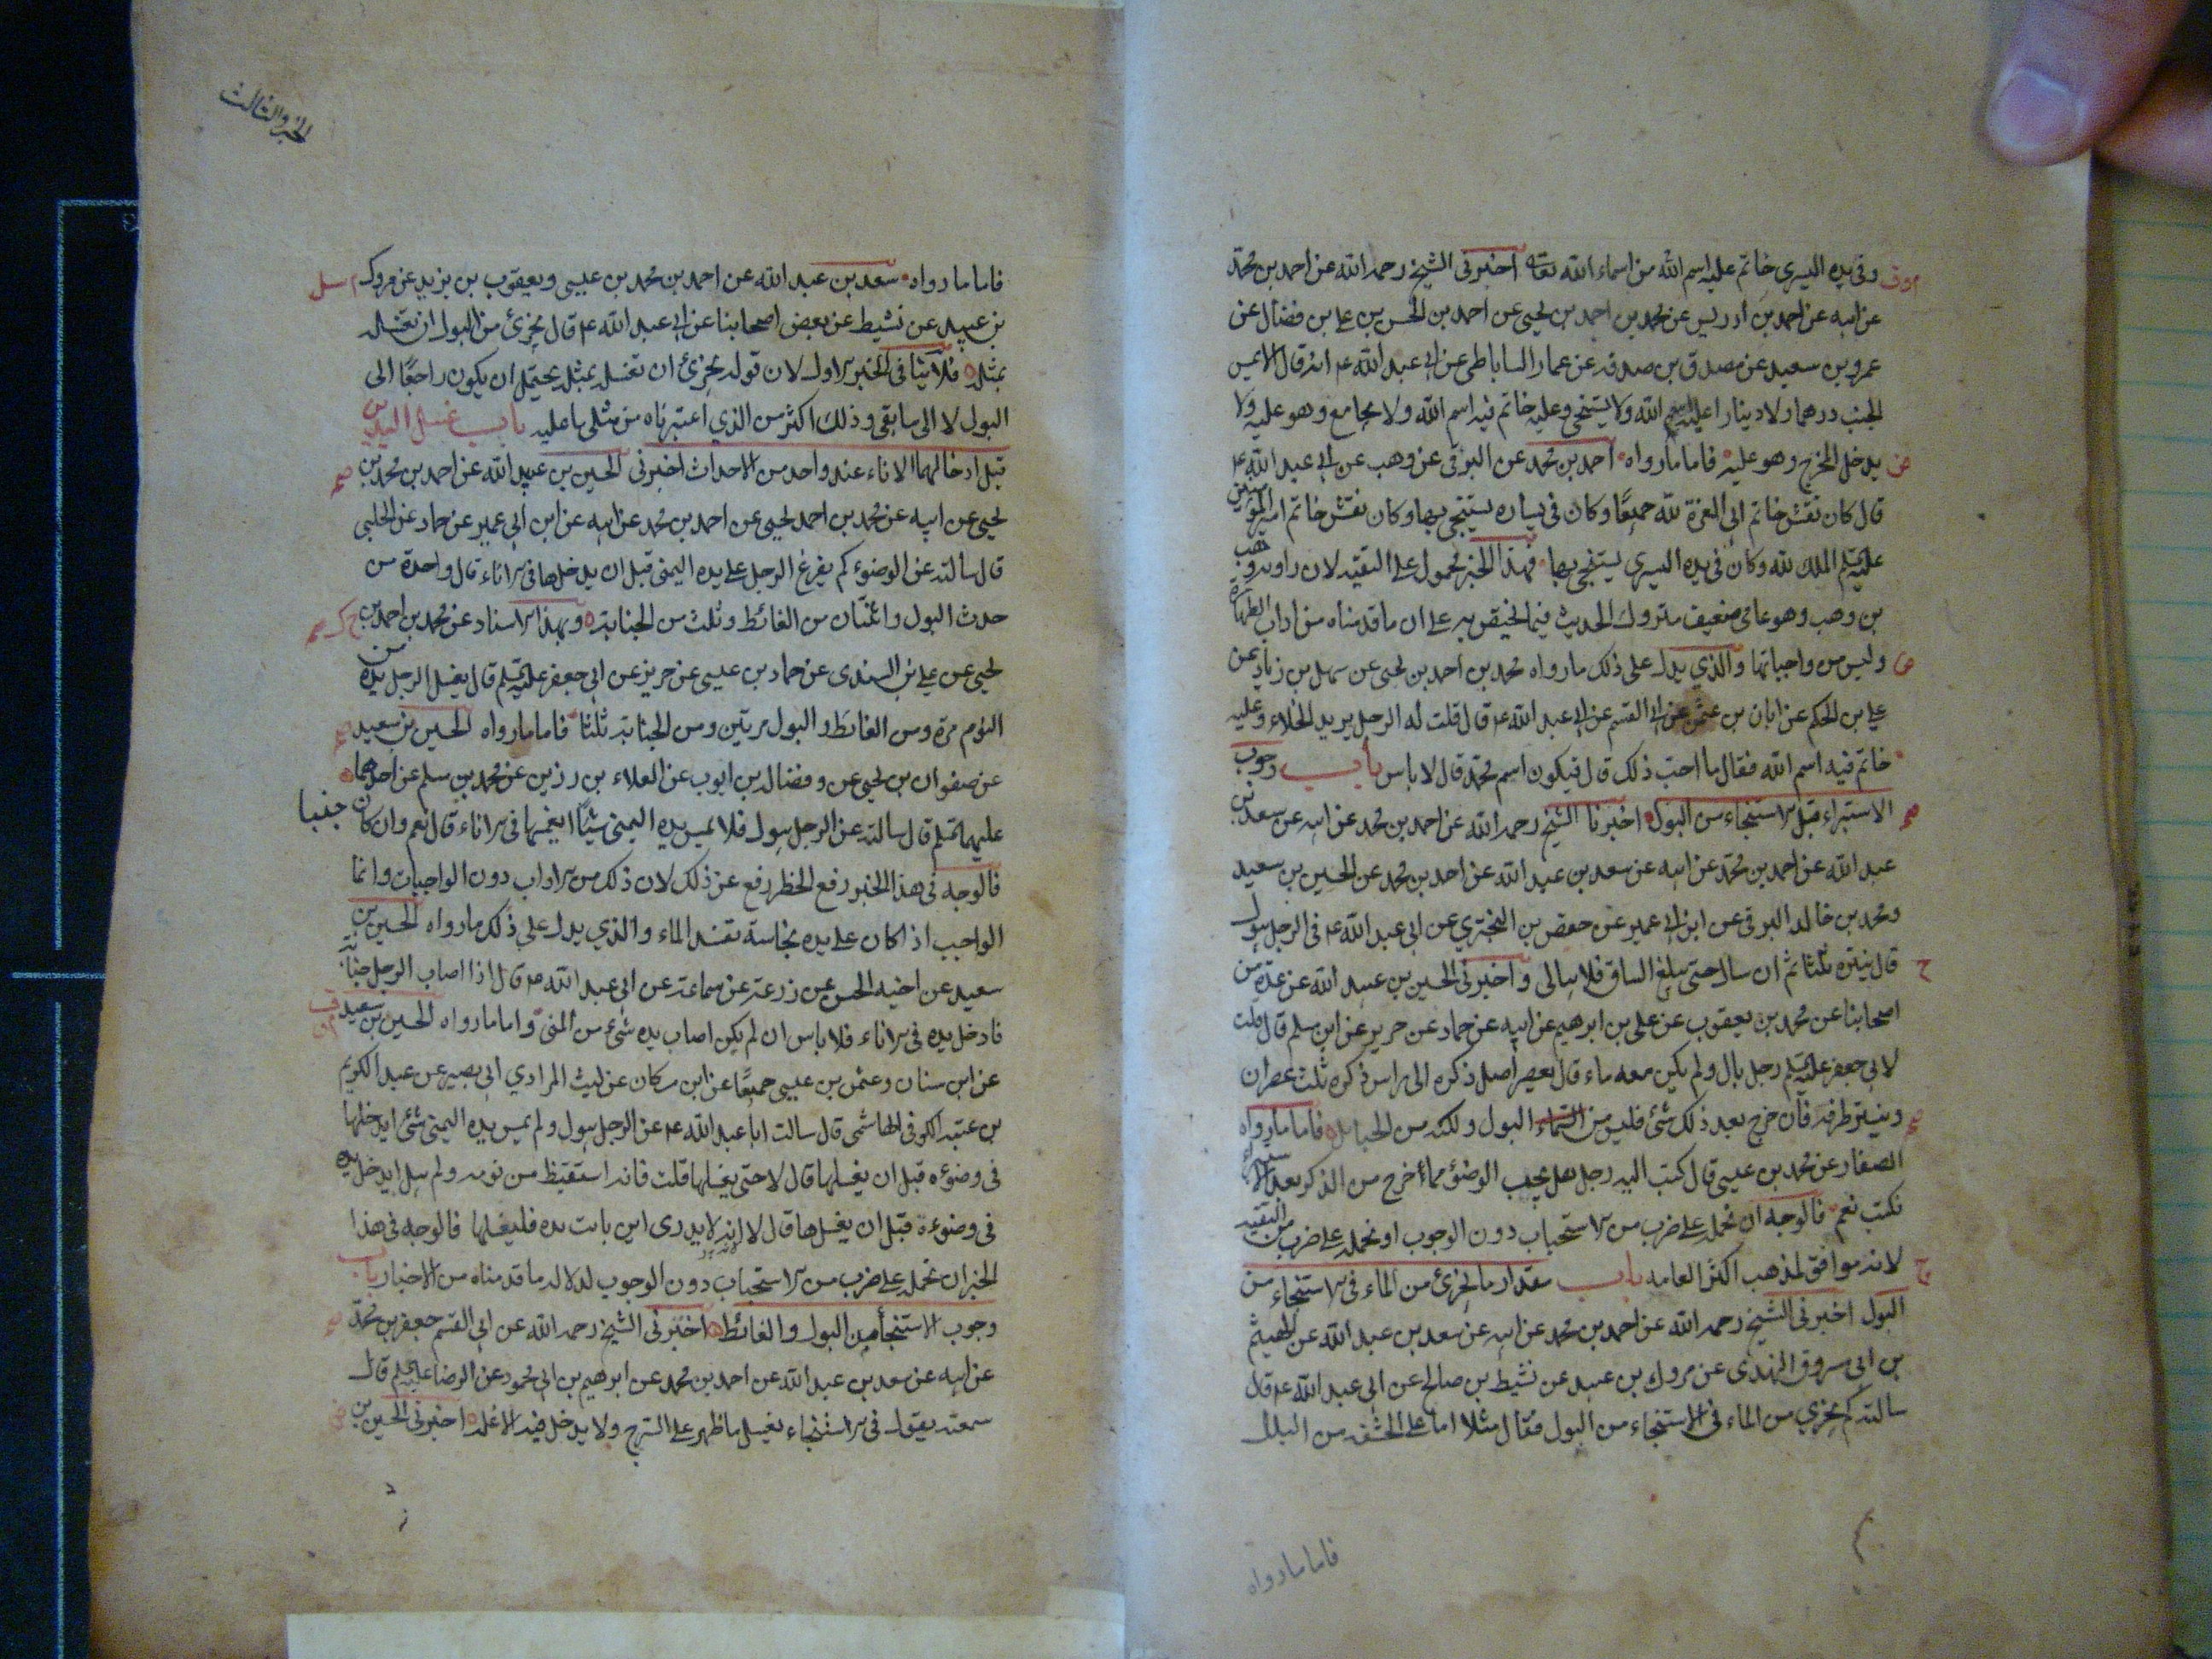 وفى يده اليسرى خاتم عليه اسم الله من اسماء الله تعالى اخبرنى الشيخ رحمه الله عن احمد بن محمد
عن ابيه عن احمد بن ادريس عن محمد بن احمد بن يحيى عن احمد بن الحسن بن على بن فضال عن
عمرو بن سعيد عن مصدق بن صدقه عن عمار الساباطى عن ابى عبد الله ع انه قال لا يمس
الجنب درهما ولا دينارا عليه اسم الله ولا يستنجى وعليه خاتم فيه اسم الله ولا يجامع وهو عليه ولا
يدخل المخرج وهو عليه فاما ما رواه احمد بن محمد عن البرقى عن وهب عن ابى عبد الله ع
قال كان نقش خاتم ابى العزة لله جميعًا وكان فى يساره يستنجى بها وكان نقش خاتم امير المؤمنين
عليه السلم الملك لله وكان فى يده اليسرى يستنجى بها فهذا الخبر محمول على التقيه لان راويه وهب
بن وهب وهو عامى ضعيف متروك الحديث فيما يختص به على ان ما قدمناه من اداب الطهارة
وليس من واجباتها والذي يدل على ذلك ما رواه محمد بن احمد بن يحيى عن سهل بن زياد عن
على بن الحكم عن ابان بن عثمن عن ابى القسم عن ابى عبد الله ع قال قلت له الرجل يريد الخلاء وعليه
خاتم فيه اسم الله فقال ما احب ذلك قال فيكون اسم محمد قال لا باس باب وجوب
الاستبراء قبل الاستنجاء من البول اخبرنا الشيخ رحمه الله عن احمد بن محمد عن ابيه عن سعد بن
عبد الله عن احمد بن محمد عن ابيه عن سعد بن عبد الله عن احمد بن محمد عن الحسين بن سعيد
ومحمد بن خالد البرقى عن ابن ابى عمير عن حفص بن البخترى عن ابى عبد الله ع فى الرجل يبول
قال ينتره ثلثا ثم ان سال حتى يبلغ الساق فلا يبالى واخبرنى الحسين بن عبيد الله عن عدة من
اصحابنا عن محمد بن يعقوب عن على بن ابرهيم عن ابيه عن حماد عن حريز عن ابن مسلم قال قلت
لابى جعفر عليه السلم رجل بال ولم يكن معه ماء قال يعصر اصل ذكره الى راس ذكره ثلث عصرات
وينتر طرفه فان خرج بعد ذلك شئ فليس من البول ولكنه من الحبائل فاما ما رواه
الصفار عن محمد بن عيسى قال كتب اليه رجل هل يجب الوضوء مما خرج من الذكر بعد الاستبراء
فكتب نعم فالوجه ان نحمله على ضرب من الاستحباب دون الوجوب او نحمله على ضرب من التقيه
لانه موافق لمذهب اكثر العامه باب مقدار ما يجزئ من الماء فى الاستنجاء من
البول اخبرنى الشيخ رحمه الله عن احمد بن محمد عن ابيه عن سعد بن عبد الله عن الهيثم
بن ابى مسروق النهدى عن مروك بن عبيد عن نشيط بن صالح عن ابى عبد الله ع قال
سالته كم يجزي من الماء فى الاستنجاء من البول فقال مثلا ما على الحشفه من البلل
فاما ما رواه
الجزو الثالث
فاما ما رواه سعد بن عبد الله عن احمد بن محمد بن عيسى ويعقوب بن يزيد عن مروك
بن عبيد عن نشيط عن بعض اصحابنا عن ابى عبد الله ع قال يجزئ من البول ان تغسله
بمثله فلا ينافى الخبر الاول لان قوله يجزئ ان تغسله بمثله يحتمل ان يكون راجعًا الى
البول لا الى ما بقى وذلك اكثر من الذي اعتبرناه من مثلى ما عليه باب غسل اليدين
قبل ادخالهما الاناء عند واحد من الاحداث اخبرنى الحسين بن عبيد الله عن احمد بن محمد بن
يحيى عن ابيه عن محمد بن احمد يحيى عن احمد بن محمد عن ابيه عن ابن ابى عمير عن حماد عن الحلبى
قال سالته عن الوضوء كم يفرغ الرجل على يده اليمنى قبل ان يدخلها فى الاناء قال واحدة من
حدث البول واثنتان من الغائط وثلث من الجنابة وبهذا الاسناد عن محمد بن احمد بن
يحيى عن على بن السندى عن حماد بن عيسى عن حريز عن ابى جعفر عليه السلم قال يغسل الرجل يده من
النوم مرة ومن الغائط والبول مرتين ومن الجنابة ثلثا فاما ما رواه الحسين بن سعيد
عن صفوان بن يحيى عن وفضاله بن ايوب عن العلاء بن رزين عن محمد بن مسلم عن احدهما
عليهما السلم قال سالته عن الرجل يبول فلا يمس يده اليمنى شيئًا ايغمسها فى الاناء قال نعم وان كان جنبا
فالوجه فى هذا الخبر رفع الحظر رفع عن ذلك لان ذلك من الاداب دون الواجبات وانما
الواجب اذا كان على يده نجاسة تفسد الماء والذي يدل على ذلك ما رواه الحسين بن
سعيد عن اخيه الحسن عن زرعة عن سماعة عن ابى عبد الله ع قال اذا اصاب الرجل جنابة
فادخل يده فى الاناء فلا باس ان لم يكن اصاب يده شئ من المنى واما ما رواه الحسين بن سعيد
عن ابن سنان وعثمن بن عيسى جميعًا عن ابن مسكان عن ليث المرادي ابى بصير عن عبد الكريم
بن عتبه الكوفى الهاشمى قال سالت ابا عبد الله ع عن الرجل يبول ولم يمس يده اليمنى شئ ايدخلها
فى وضوءه قبل ان يغسلها قال لا حتى يغسلها قلت فانه استيقظ من نومه ولم يبل ايدخل يده
فى وضوءه قبل ان يغسلها قال لا لانه لا يدرى اين باتت يده فليغسلها فالوجه فى هذا
الخبر ان نحمله على ضرب من الاستحباب دون الوجوب لدلاله ما قدمناه من الاخبار باب
وجوب الاستنجاء من البول والغائط اخبرنى الشيخ رحمه الله عن ابى القسم جعفر بن محمد
عن ابيه عن سعد بن عبد الله عن احمد بن محمد عن ابرهيم بن ابى محمود عن الرضا عليه السلم قال
سمعته يقول فى الاستنجاء يغسل ما ظهر على الشرج ولا يدخل فيه الانمله اخبرنى الحسين بن